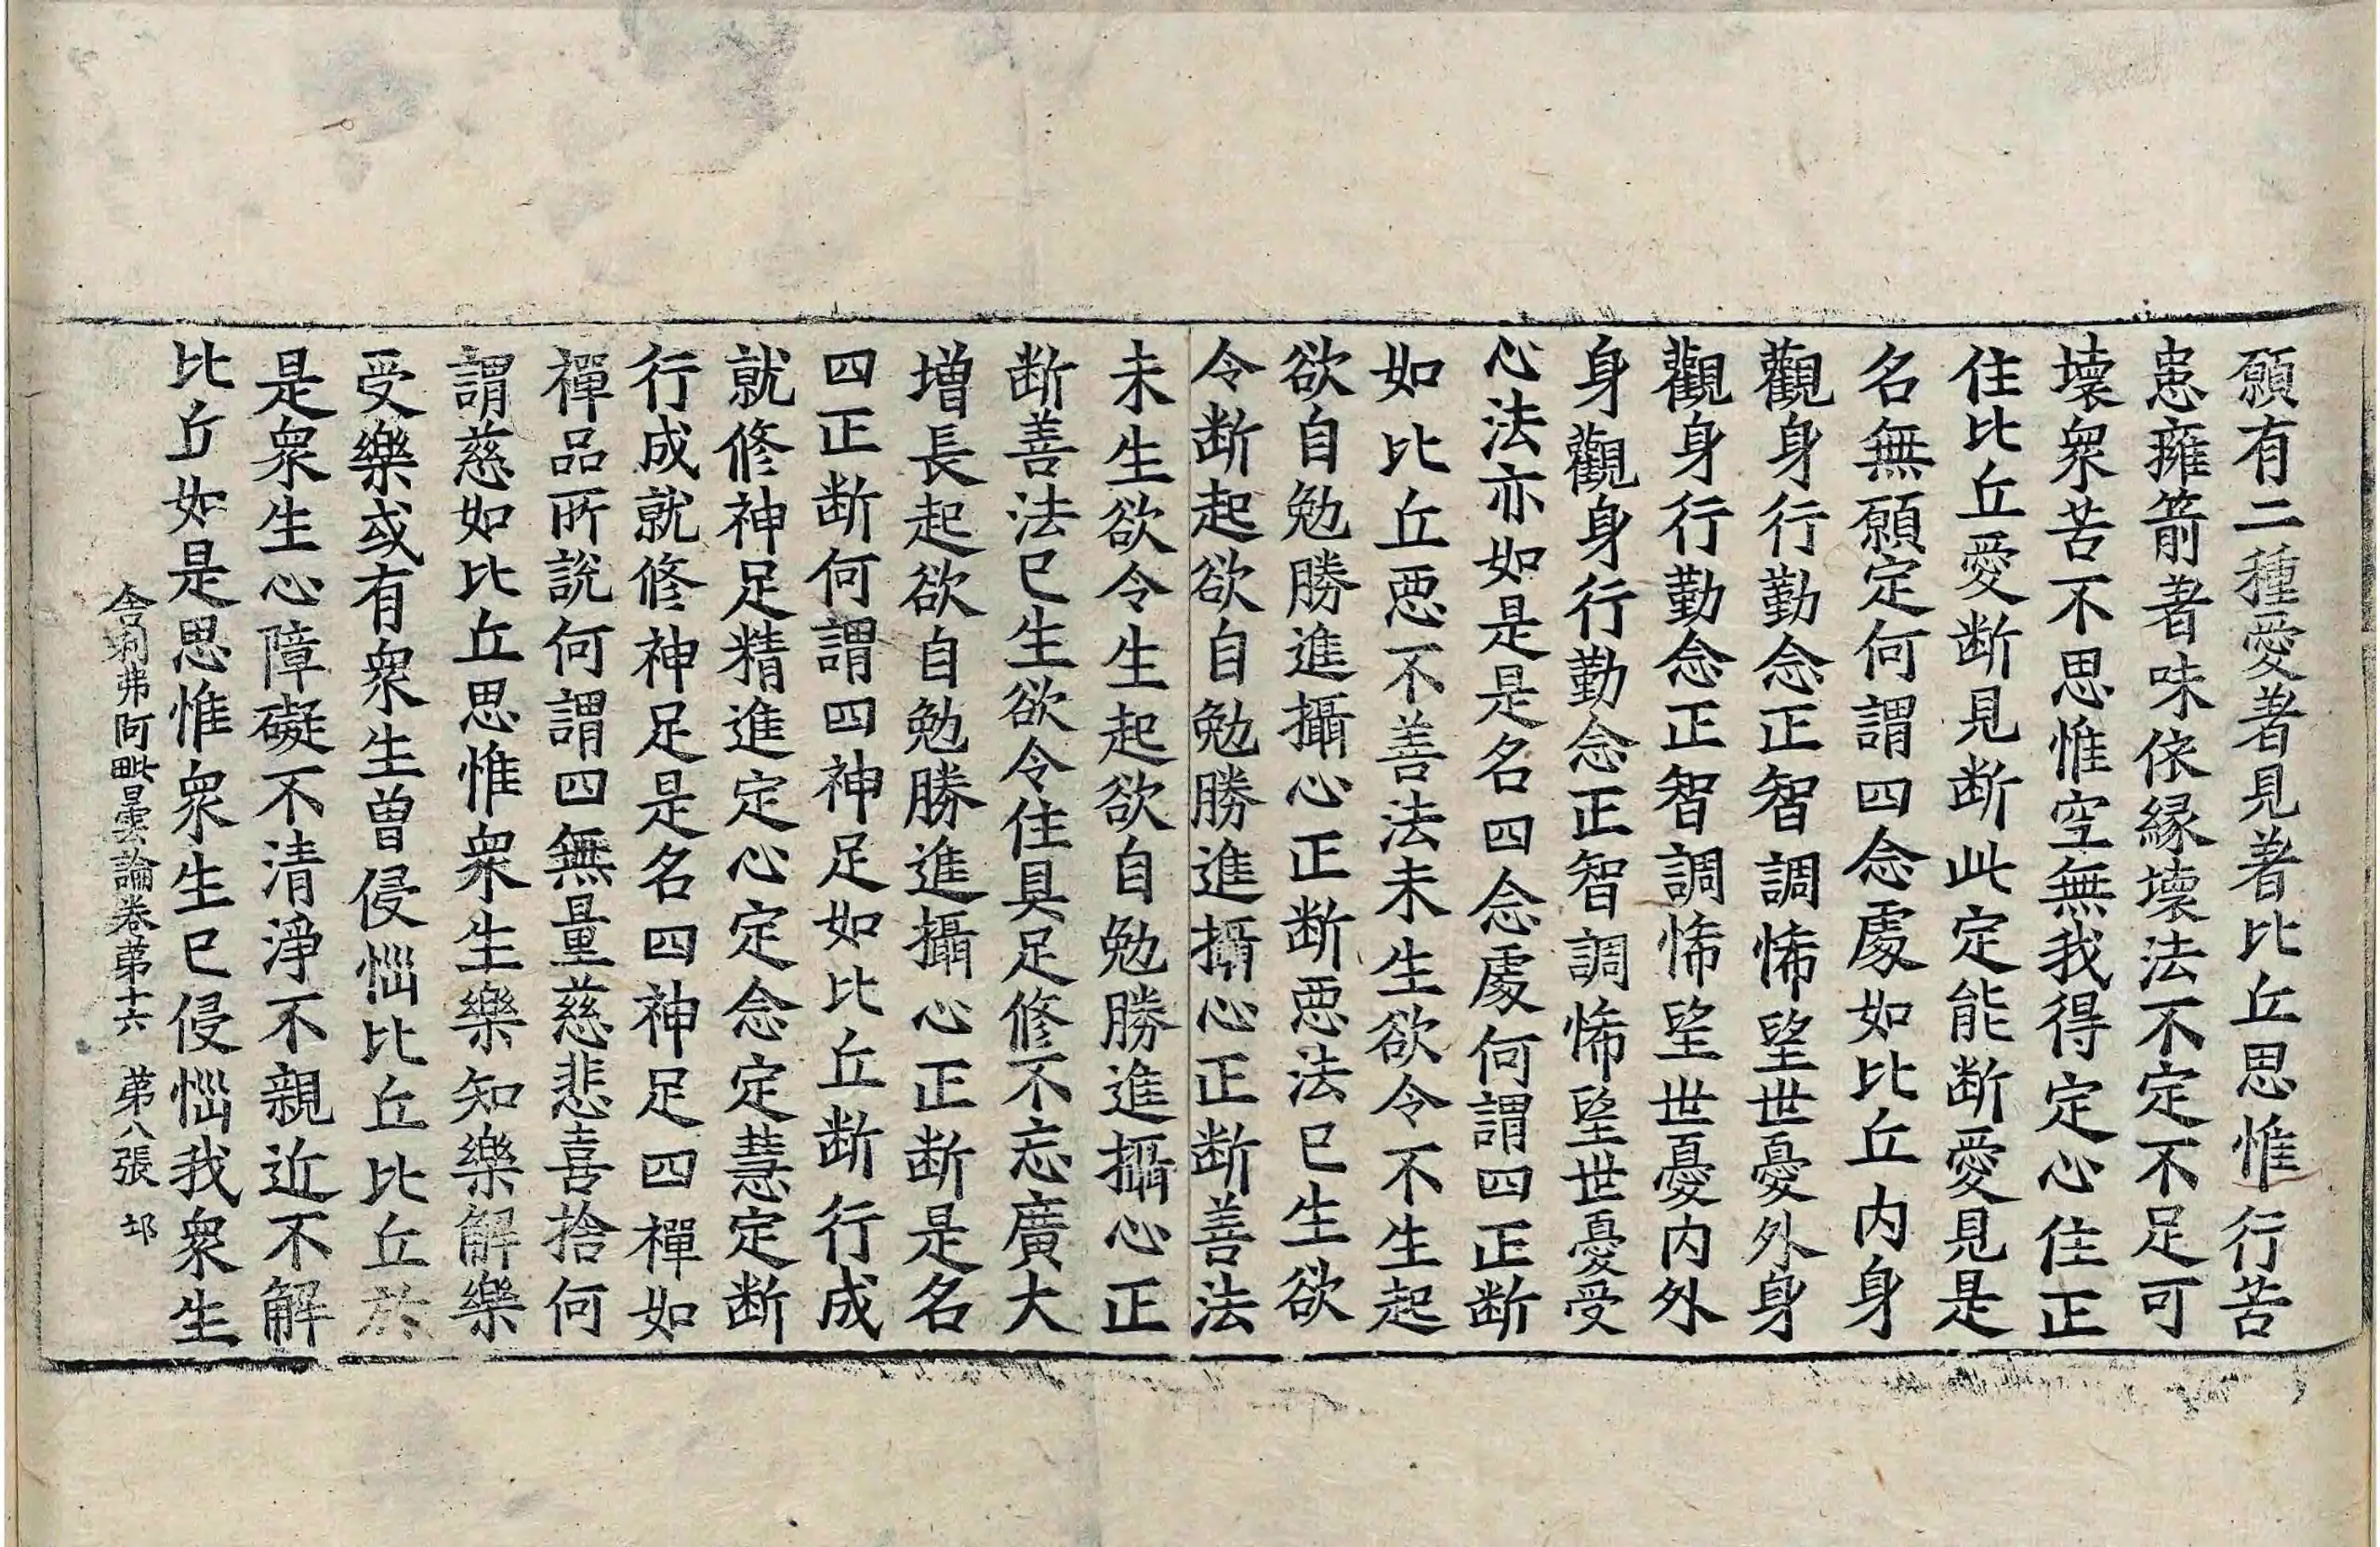 願有二種愛著見著比丘思惟行苦
患癕箭著味依緣壞法不定不足可
壞衆苦不思惟空無我得定心住正
住比丘愛断見断此定能断愛見是
名無願定何謂四念處如比丘内身
觀身行勤念正智調悕望世憂外身
觀身行勤念正智調悕望世憂内外
身觀身行勤念正智調悕望世憂受
心法亦如是是名四念處何謂四正断
如比丘惡不善法未生欲令不生起
欲自勉勝進攝心正断惡法已生欲
令断起欲自勉勝進攝心正断善法
未生欲令生起欲自勉勝進攝心正
断善法已生欲令住具足修不忘廣大
增長起欲自勉勝進攝心正断是名
四正断何謂四神足如比丘断行成
就修神足精進定心定念定慧定断
行成就修神足是名四神足四禪如
禪品所說何謂四無量慈悲喜捨何
謂慈如比丘思惟衆生樂知樂解樂
受樂或有衆生曾侵惱比丘比丘於
是衆生心障礙不清淨不親近不解
比丘如是思惟衆生已侵惱我衆生
舍利弗阿毗曇論卷第十六 第八張 㘽